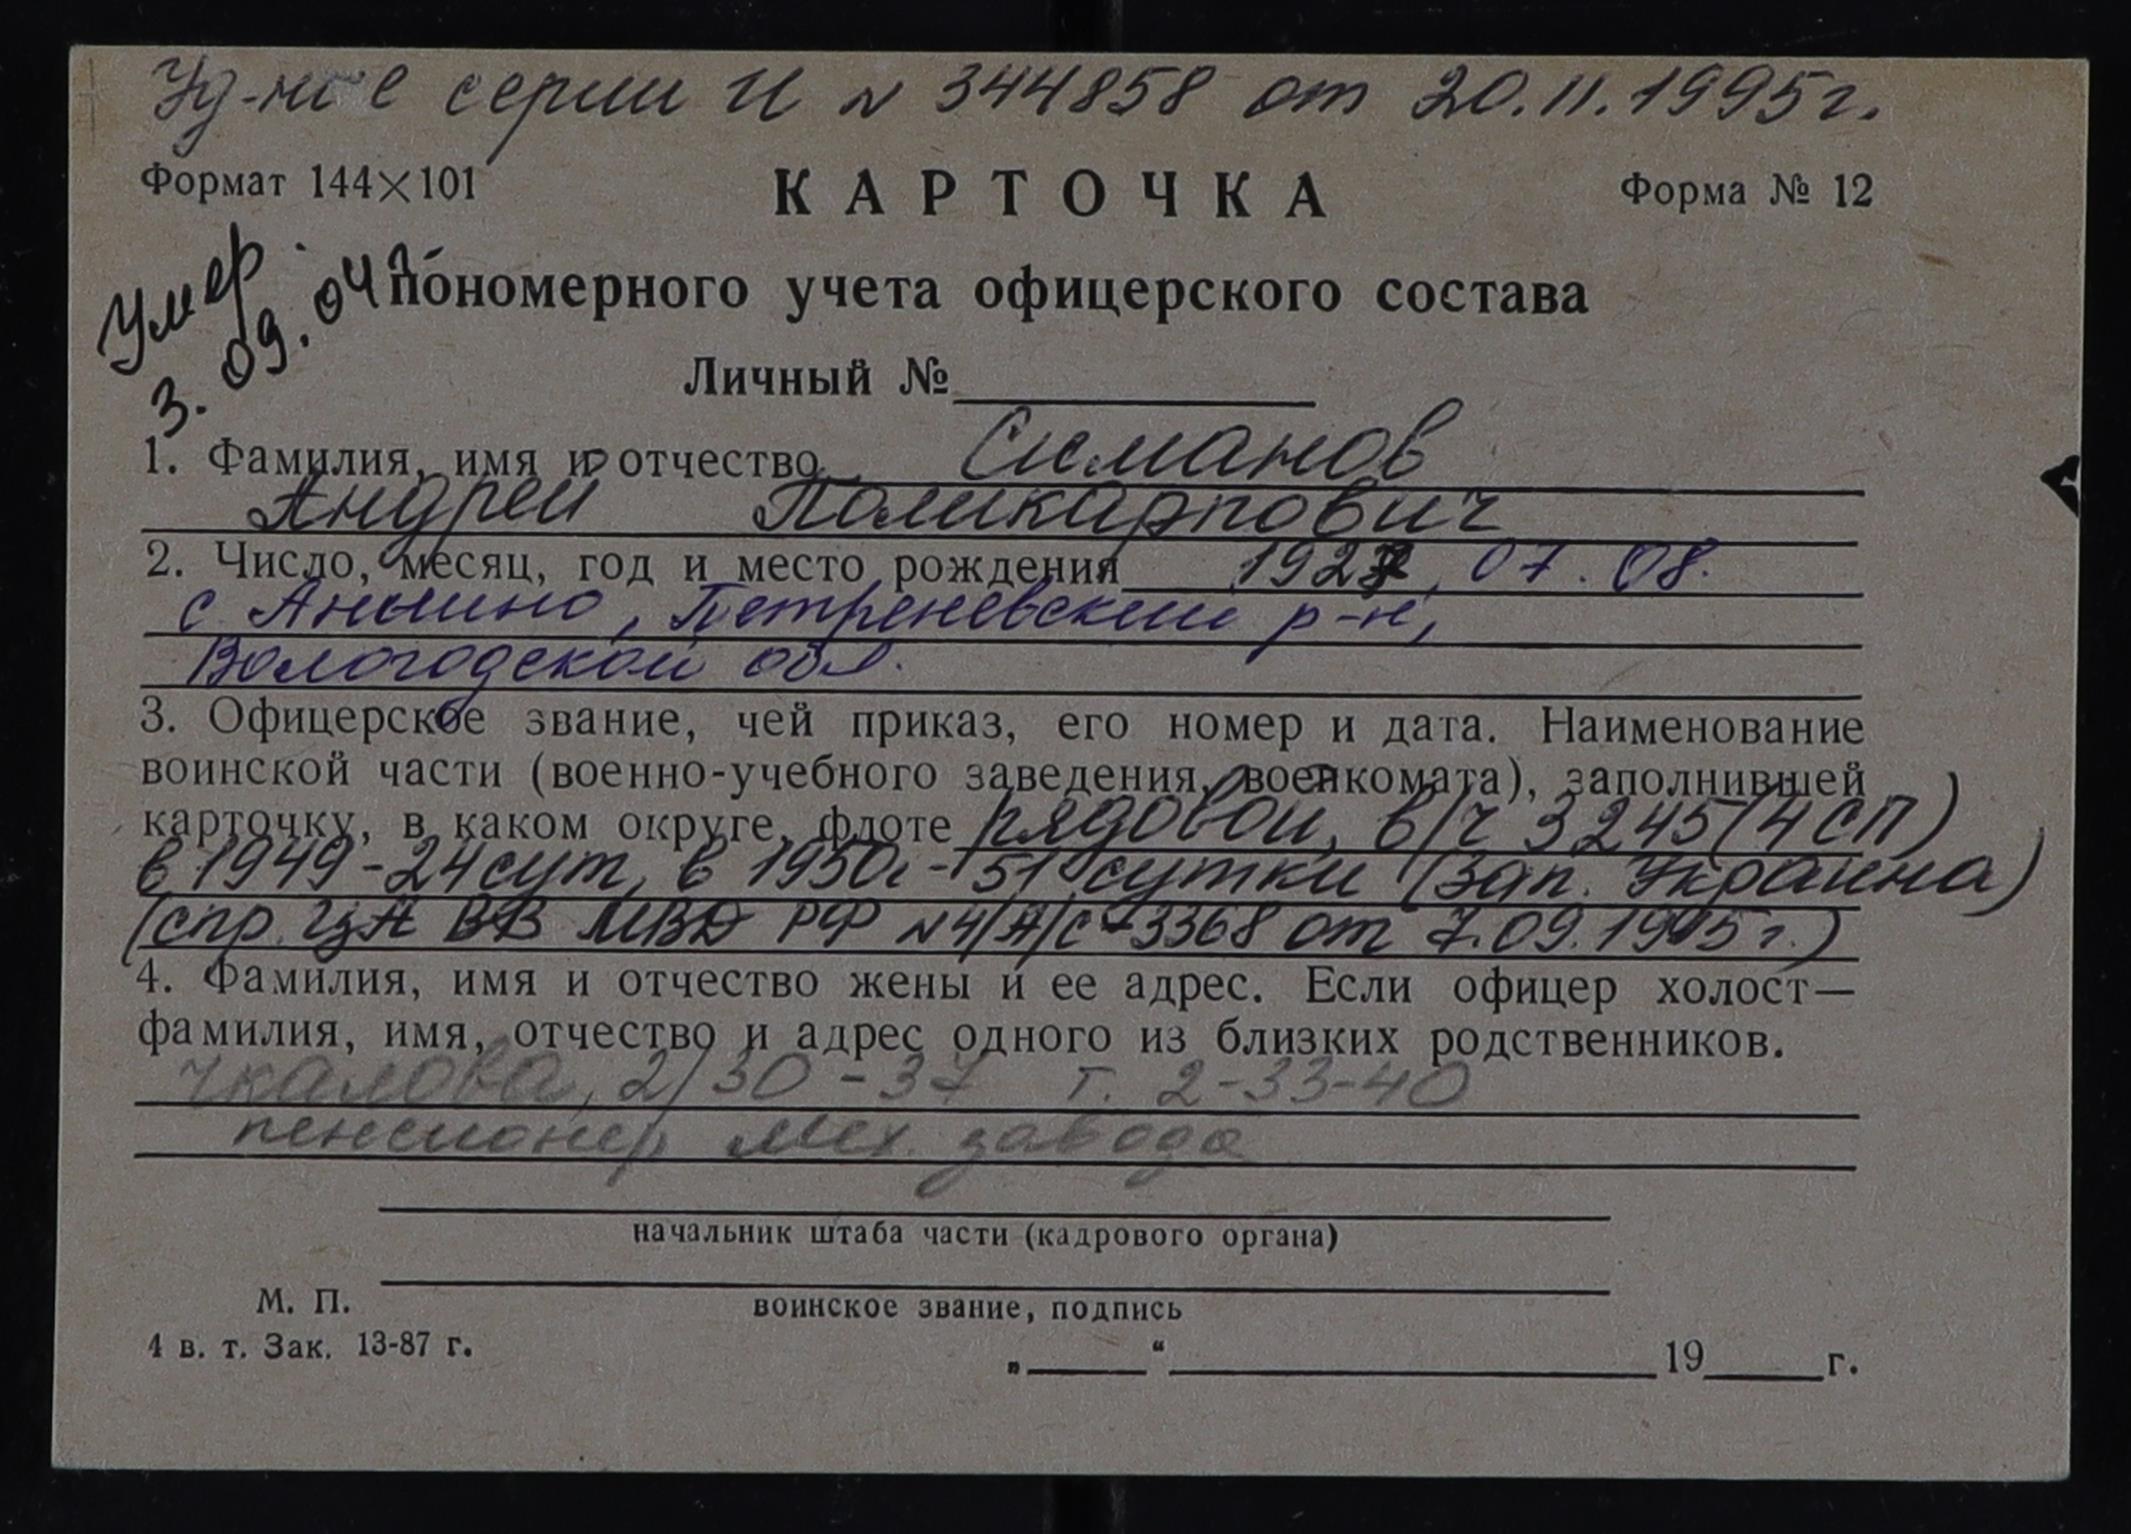 Уд-ние серии И № 344858 от 20.11.1995г.
Формат 144×101
КАРТОЧКА
Форма № 12
Умер
3.09.04г
пономерного учета офицерского состава
Личный №
1. Фамилия, имя и отчество Симанов
Андрей Поликарпович
2. Число, месяц, год и место рождения 1927, 07.08.
с. Аньшино, Петреневский р-н,
Вологодской обл.
3. Офицерское звание, чей приказ, его номер и дата. Наименование
воинской части (военно-учебного заведения, военкомата), заполнившей
карточку, в каком округе, флоте рядовой, в/ч 3245 (4 СП)
в 1949-24сут, в 1950г-51 сутки (Зап. Украина)
(спр. ЦА ВВ МВД РФ №4/А/с-3368 от 7.09.1995г.)
4. Фамилия, имя и отчество жены и ее адрес. Если офицер холост—
фамилия, имя, отчество и адрес одного из близких родственников.
Чкалова, 2/30-37 т. 2-33-40
пенсионер мех. завода
начальник штаба части (кадрового органа)
М. П.
воинское звание, подпись
4 в. т. Зак. 13-87 г.
„ “ 19 г.